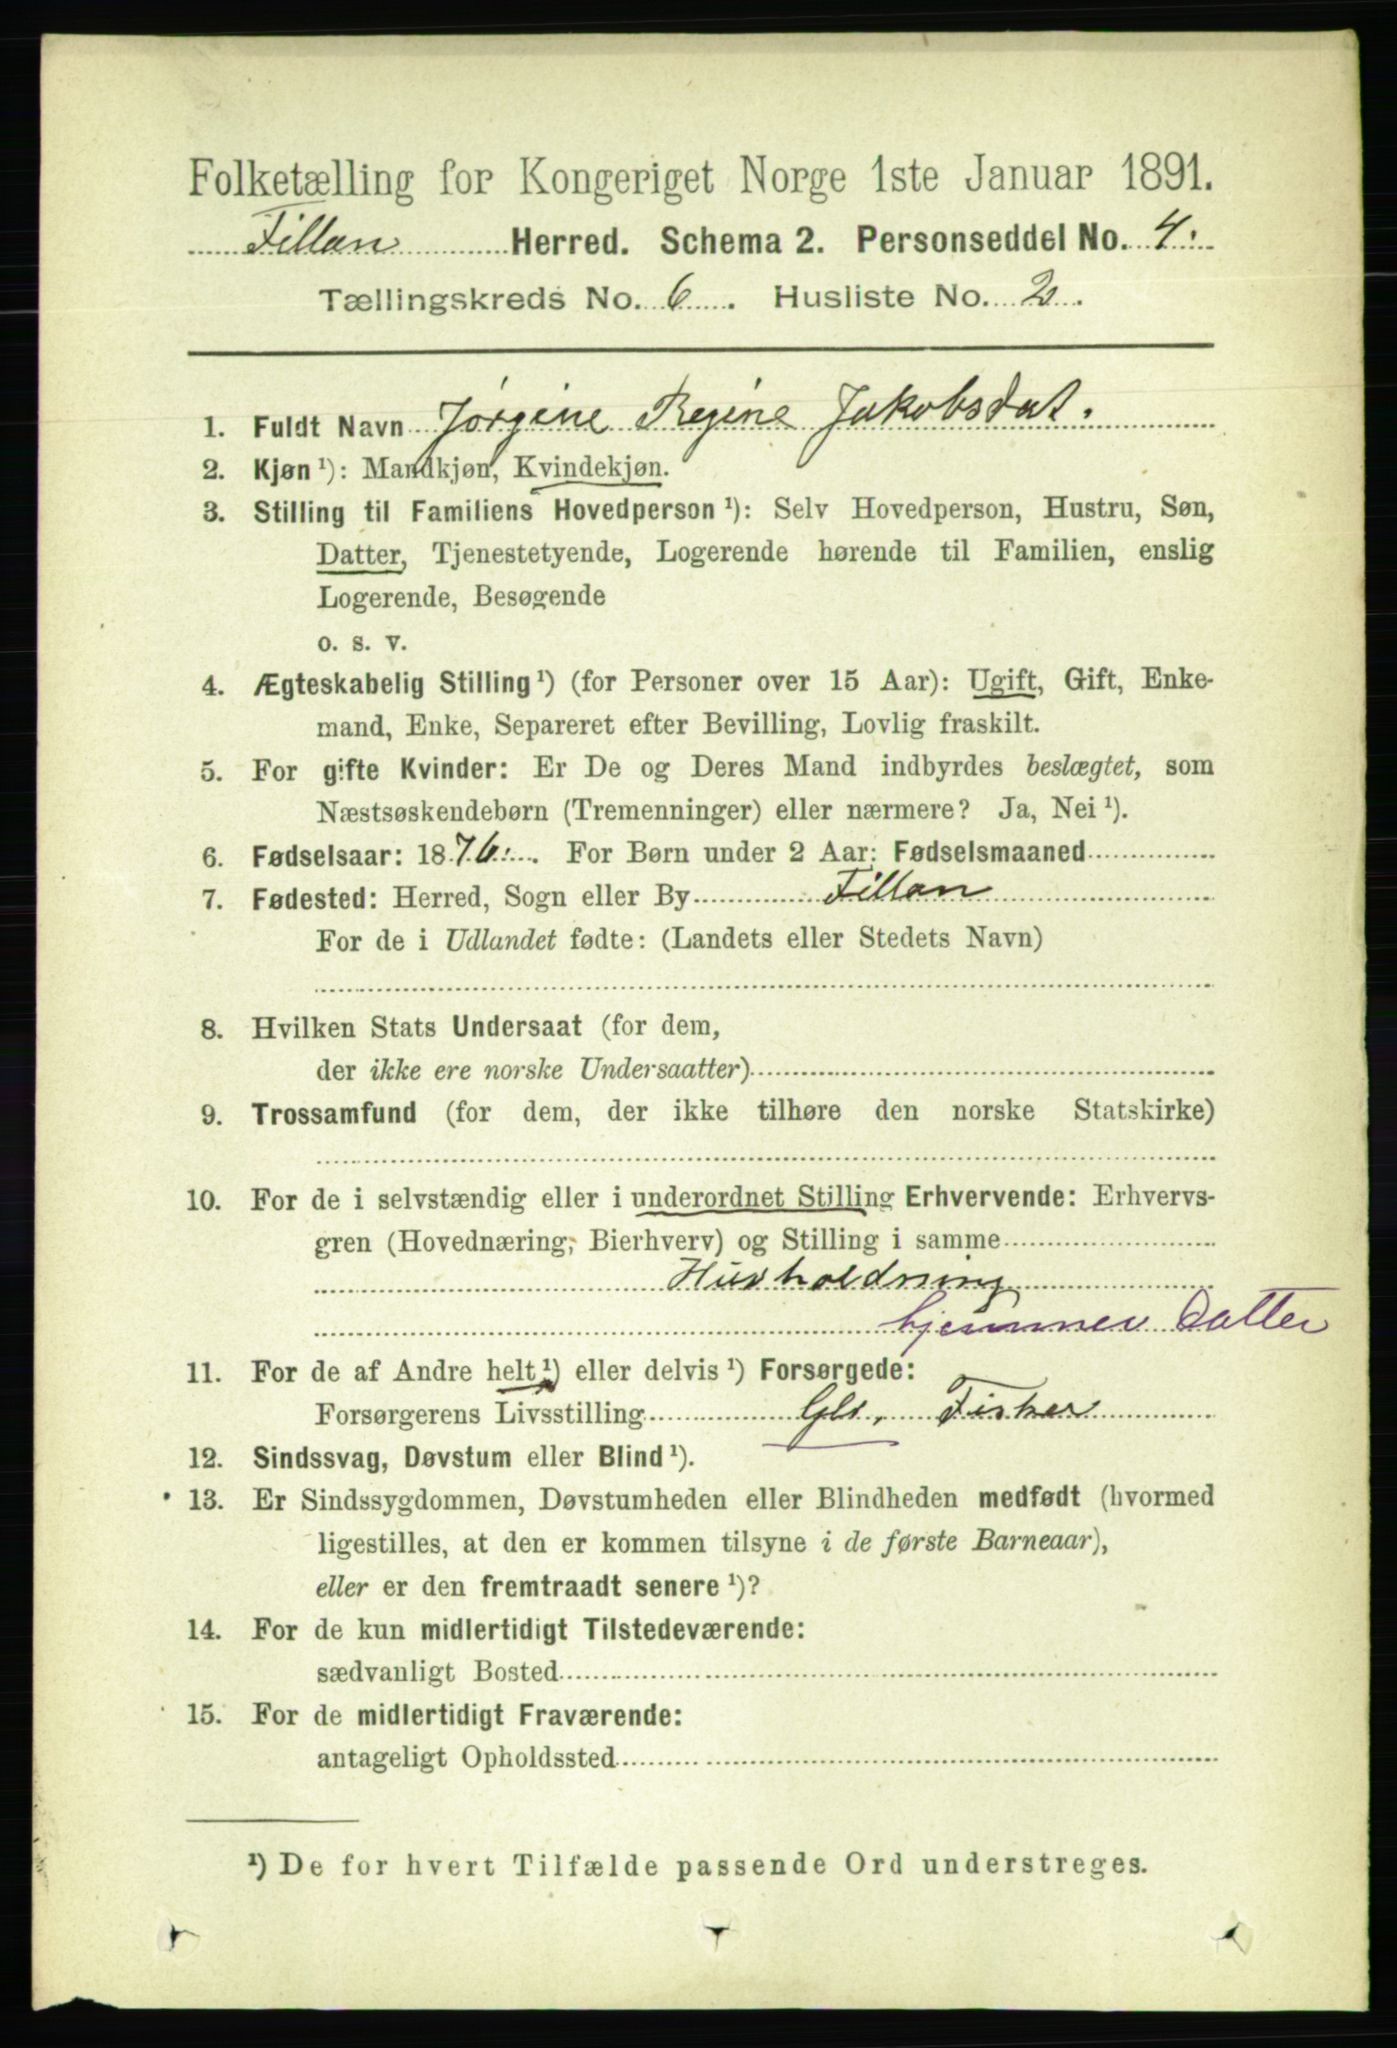 Folketælling for Kongeriget Norge 1ste Januar 1891.
Fillan Herred. Schema 2. Personseddel No. 4.
Tællingskreds No. 6. Husliste No. 2.
1. Fuldt Navn Jørgine Regine Jakobsdat.
2. Kjøn ¹): Mandkjøn, Kvindekjøn.
3. Stilling til Familiens Hovedperson ¹): Selv Hovedperson, Hustru, Søn,
Datter, Tjenestetyende, Logerende hørende til Familien, enslig
Logerende, Besøgende
o. s. v.
4. Ægteskabelig Stilling ¹) (for Personer over 15 Aar): Ugift, Gift, Enke-
mand, Enke, Separeret efter Bevilling, Lovlig fraskilt.
5. For gifte Kvinder: Er De og Deres Mand indbyrdes beslægtet, som
Næstsøskendebørn (Tremenninger) eller nærmere? Ja, Nei ¹).
6. Fødselsaar: 1876. For Børn under 2 Aar: Fødselsmaaned
7. Fødested: Herred, Sogn eller By Fillan
For de i Udlandet fødte: (Landets eller Stedets Navn)
8. Hvilken Stats Undersaat (for dem,
der ikke ere norske Undersaatter)
9. Trossamfund (for dem, der ikke tilhøre den norske Statskirke)
10. For de i selvstændig eller i underordnet Stilling Erhvervende: Erhvervs-
gren (Hovednæring, Bierhverv) og Stilling i samme
Husholdning
hjemmev Datter
11. For de af Andre helt ¹) eller delvis ¹) Forsørgede:
Forsørgerens Livsstilling Fisker
12. Sindssvag, Døvstum eller Blind ¹).
13. Er Sindssygdommen, Døvstumheden eller Blindheden medfødt (hvormed
ligestilles, at den er kommen tilsyne i de første Barneaar),
eller er den fremtraadt senere ¹)?
14. For de kun midlertidigt Tilstedeværende:
sædvanligt Bosted
15. For de midlertidigt Fraværende:
antageligt Opholdssted
¹) De for hvert Tilfælde passende Ord understreges.